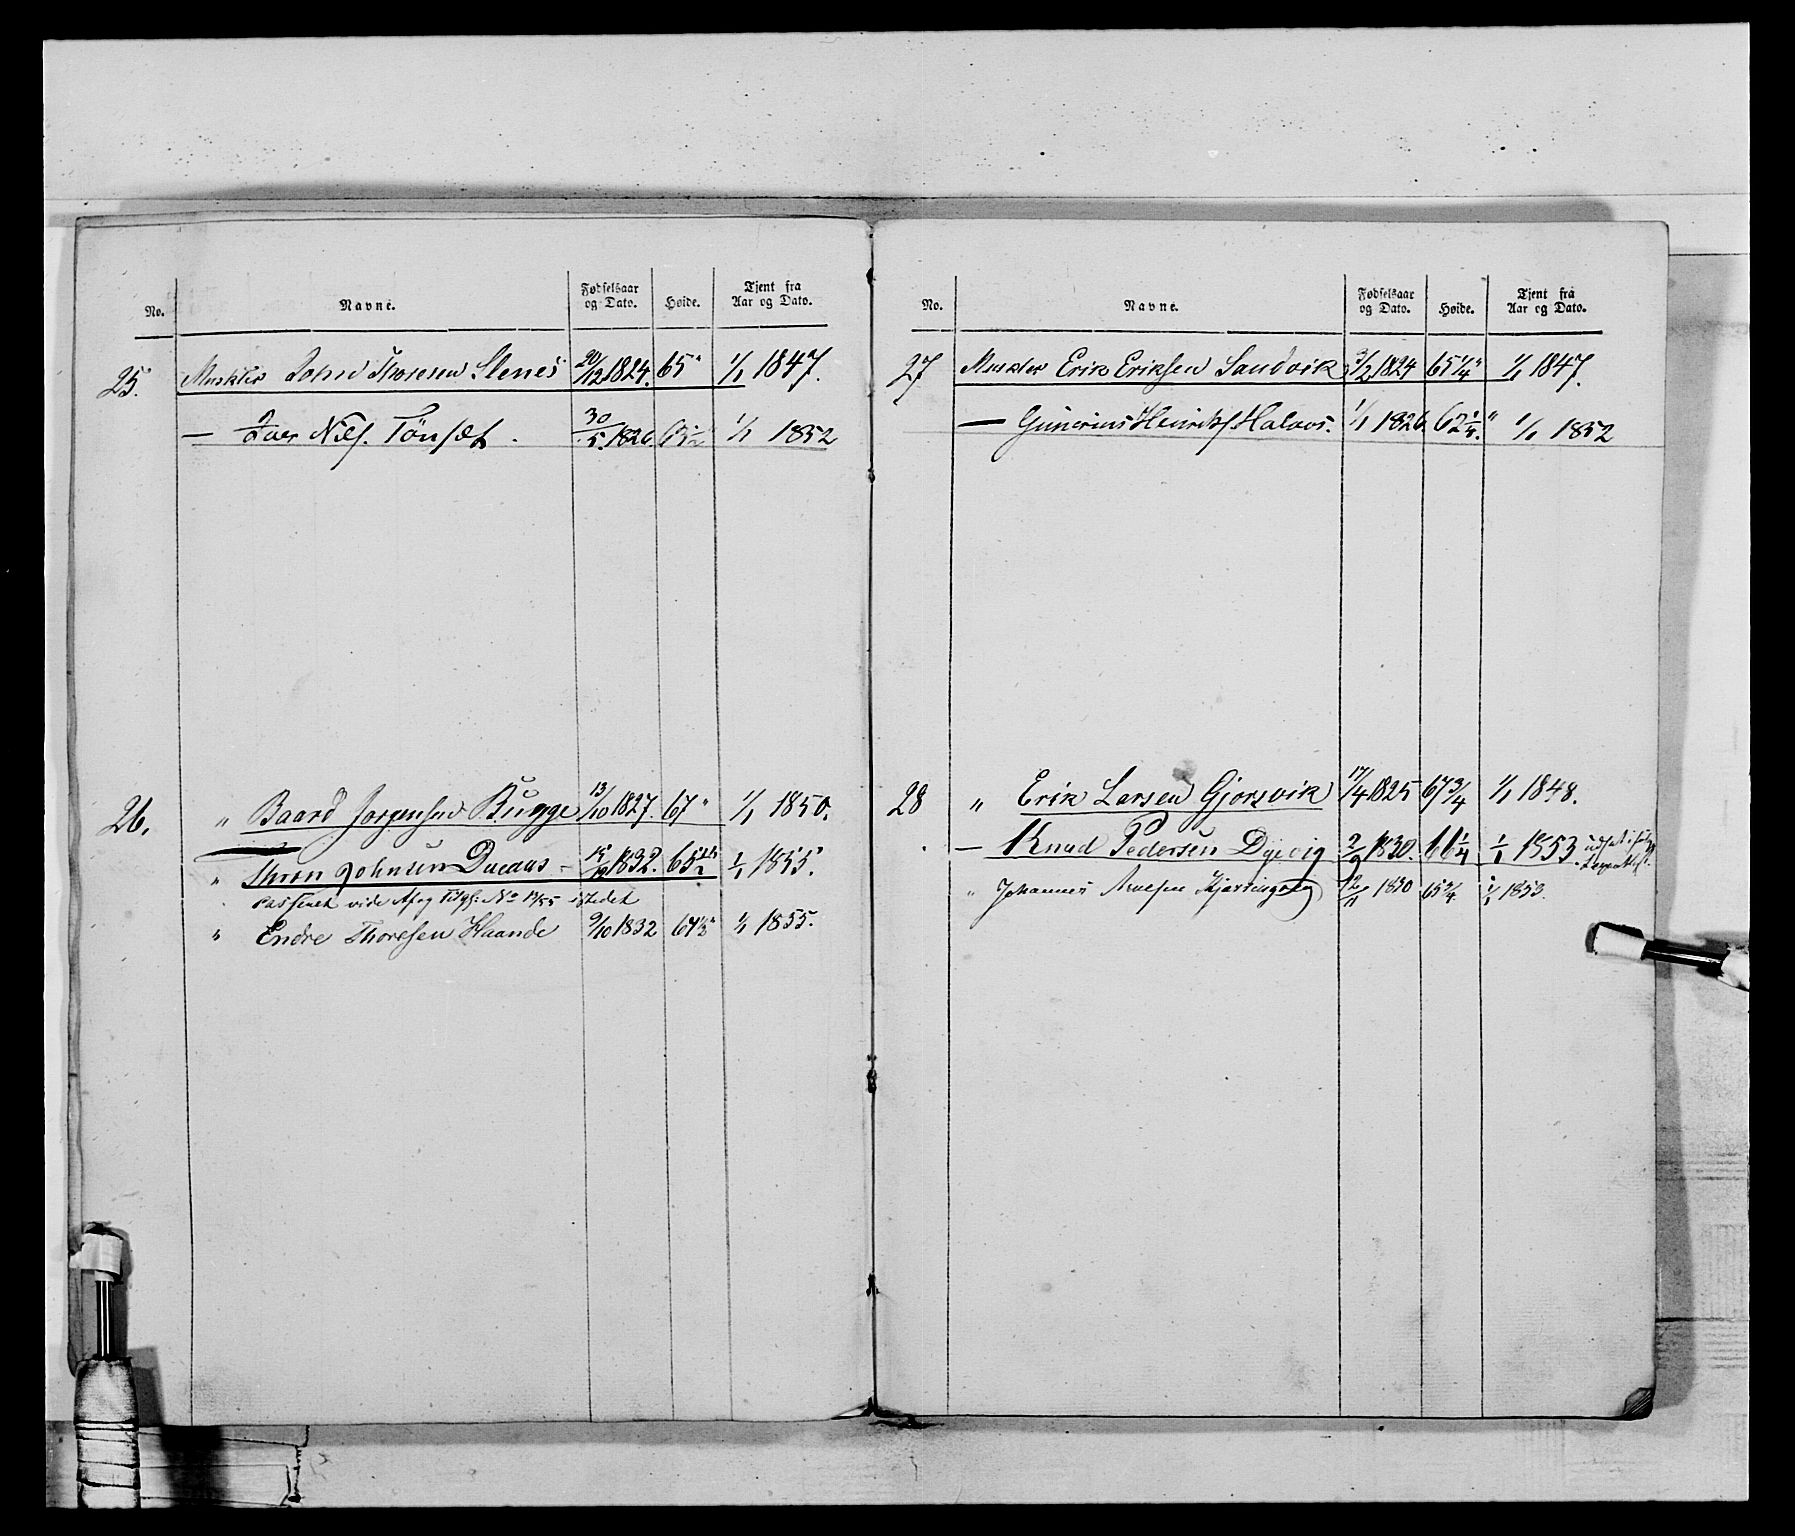 No. Navne. Fødselsaar og Dato. Høide. Tjent fra Aar og Dato.
25. Musktr John Thoresen Stenes 20/12 1824. 65" 1/1 1847.
— Iver Nils. Tönset. 30/5. 1826. 65 1/2 1/1 1852
26. " Baard Jorgensen Bugge 13/10 1827. 67" 1/1 1850.
" Thron Johnsen 15/10 1832. 65 1/1 1855.
Passeret vide Afg No 12/55 istedet
" Endre Thoresen Haande 9/10 1832 67 1/2" 1/1 1855.
No. Navne. Fødselsaar og Dato. Høide. Tjent fra Aar og Dato.
27 Musktr Erik Eriksen Sandvik 3/2 1824 65 1/4" 1/1 1847.
— Gunerius Henriks Halaos. 1/1 1826. 62 1/4." 1/1 1852
28 " Erik Larsen Gjorsvik 17/4 1825 67 3/4 1/1 1848.
— Knud Pedersen Dyevig 2/9 1830. 66 1/4 1/1 1853.
" Johannes Arnesen 12/11 1830 65 3/4 1/1 1853.